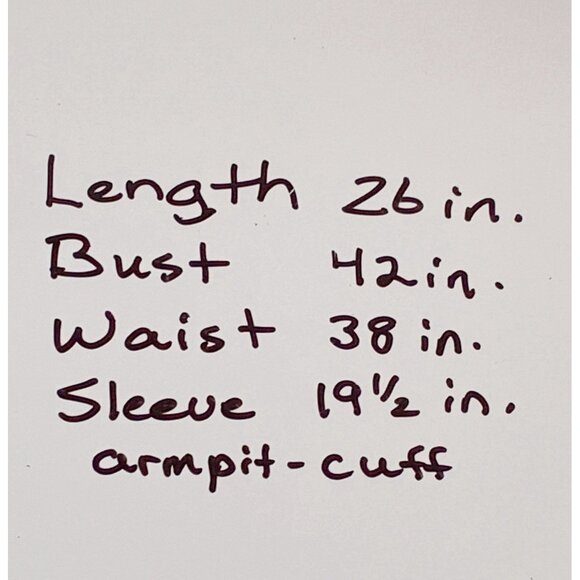 Length 26 in.
Bust 42 in.
Waist 38 in.
Sleeve 19 1/2 in.
armpit - cuff